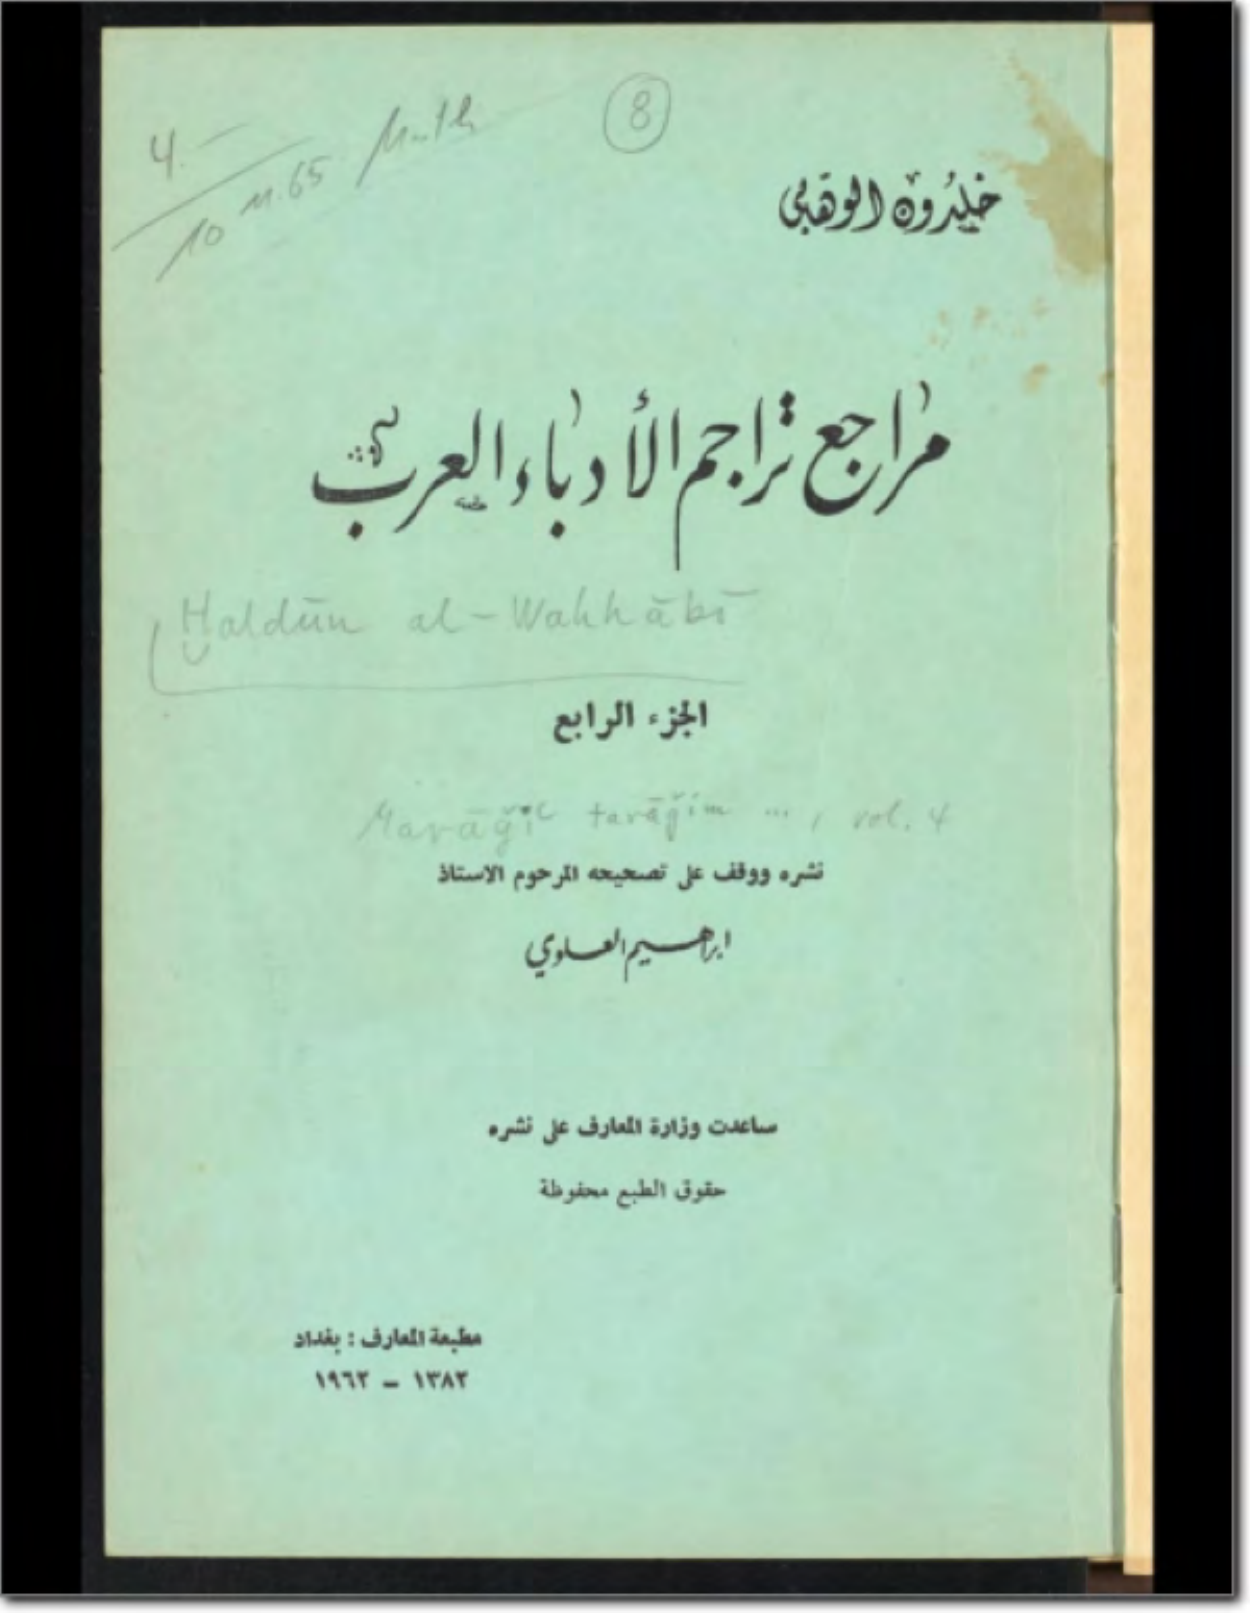 8
4.
10 11.65
خلدون الوهابي
مراجع تراجم الأدباء العرب
Ḫaldūn al-Wahhābī
الجزء الرابع
Marāǧiʿ tarāǧim ..., vol. 4
نشره ووقف على تصحيحه المرحوم الاستاذ
ابراهيم العلوي
ساعدت وزارة المعارف على نشره
حقوق الطبع محفوظة
مطبعة المعارف : بغداد
١٣٨٢ – ١٩٦٢